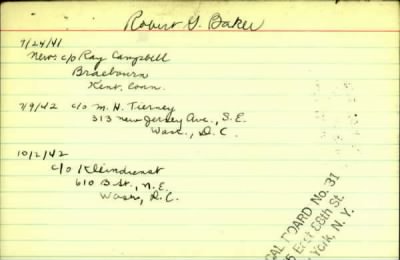 Robert G. Baker
7/24/41
News c/o Ray Campbell
Braebourn
Kent, Conn.
7/9/42 c/o M. H. Tierney
313 New Jersey Ave., S.E.
Wash., D.C.
10/2/42
c/o Kleindienst
610 B St., N.E.
Wash., D.C.
CAL BOARD No. 31
6 East 88th St.
York, N. Y.